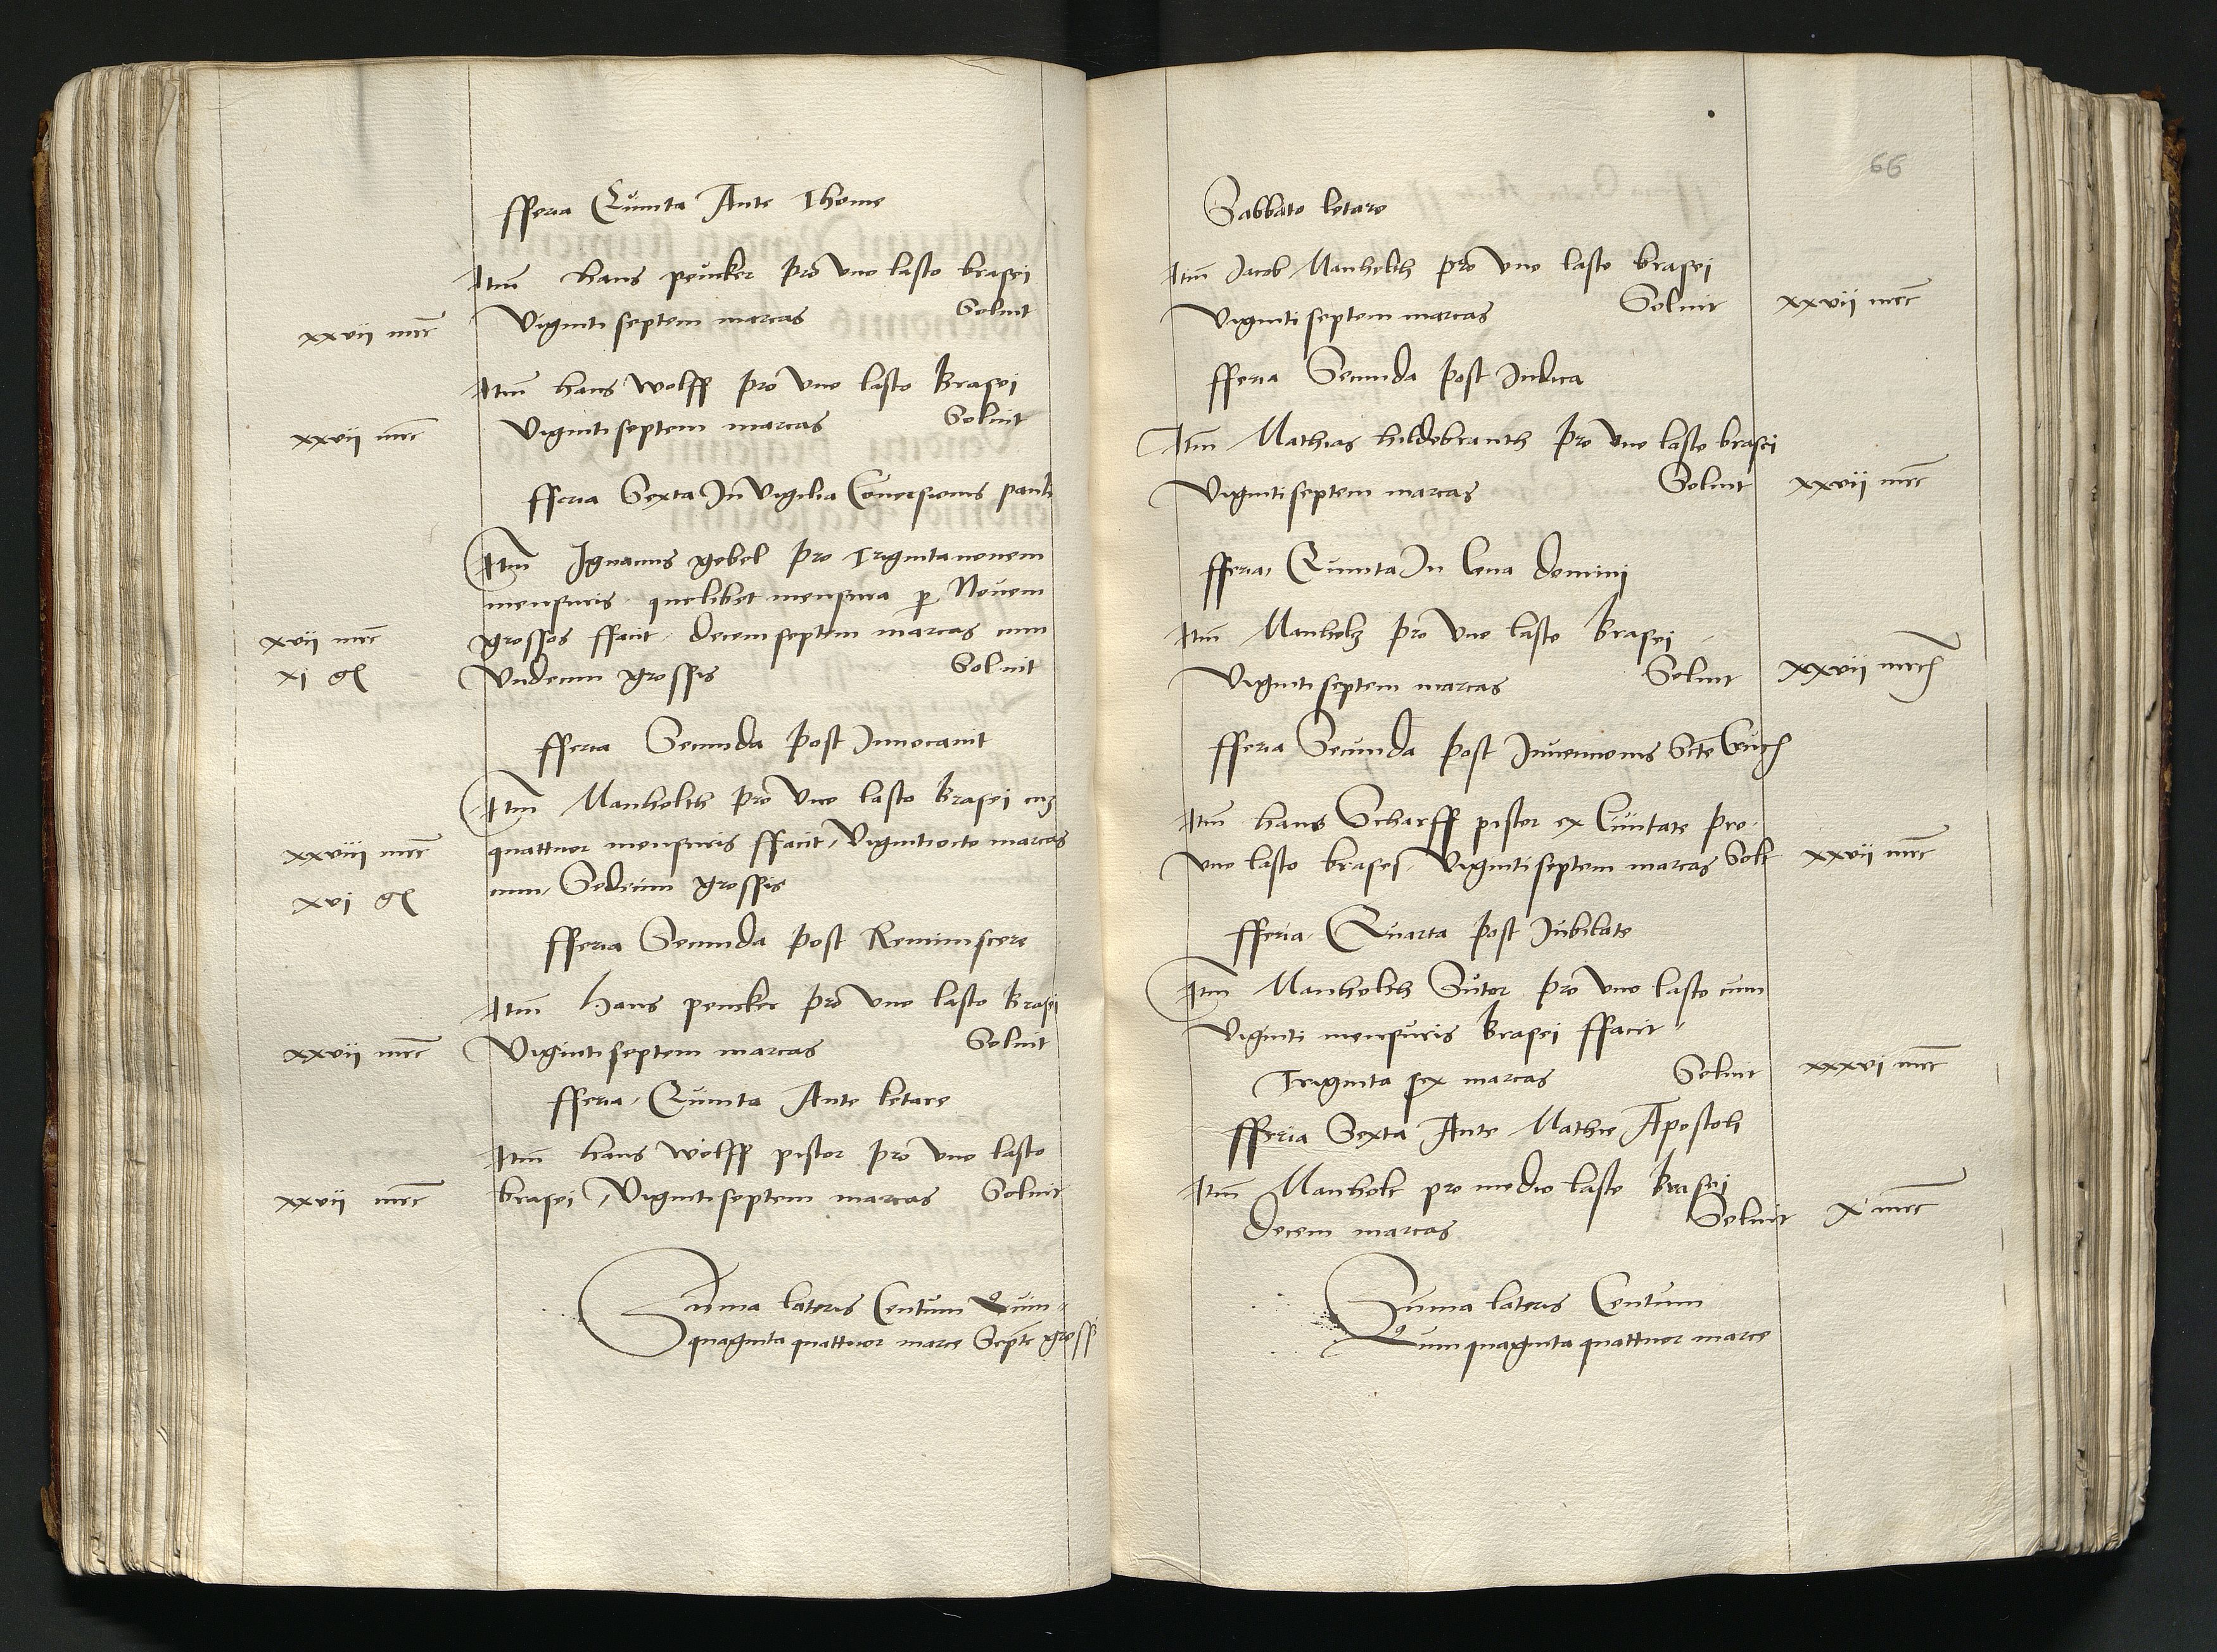 fferia Quinta Ante Thome
Itm̃ hans peucker pro vno lasto brasei
xxvii mrc̃ Viginti septem marcas Soluit
Itm̃ hans wolff pro vno lasto Brasei
xxvii mrc̃ Viginti septem marcas Soluit
fferia Sexta In Vigilia Conuersionis pauli
Itm̃ Ignacius gebel pro Trigintanouem
mensuris quelibet mensura p Nouem
xvii mrc̃ grossos ffacit decemseptem marcas cum
xi gͬ Vndecim grossis Soluit
fferia Secunda post Inuocauit
Itm̃ Manholth pro Vno lasto Brasei cuȝ
xxviii mrc̃ quattuor mensuris ffacit Vigintiocto marcas
xvi gͬ cum Sedecim grossis
fferia Secunda post Reminiscere
Itm̃ Hans peucker pro vno lasto Brasei
xxvii mrc̃ Viginti septem marcas Soluit
fferia Quinta Ante letare
Itm̃ hans wolff pistor pro vno lasto
xxvii mrc̃ brasei Vigintiseptem marcas Soluit
Sum̃a lateris Centum Quin-
quaginta quattuor marce Septẽ grossi
66
Sabbato letare
Itm̃ Jacob Manholth pro vno lasto brasei
Viginti septem marcas Soluit xxvii mrc̃
fferia Secunda post Iudica
Itm̃ Mathias hildebranth pro vno lasto brasei
Viginti septem marcas Soluit xxvii mrc̃
fferia Quinta In Cena domini
Itm̃ Manholz pro vno lasto Brasei
Viginti septem marcas Soluit xxvii mrc̃
fferia Secunda post Inuencionis Sctẽ Cruc̃
Itm̃ hans Scharff pistor ex Ciuitate pro
vno lasto brasei Viginti septem marcas Solt xxvii mrc̃
fferia Quarta post Jubilate
Itm̃ Manholth Sutor pro vno lasto cum
Viginti mensuris Brasei ffacit
Triginta sex marcas Soluit xxxvi mrc̃
fferia Sexta Ante Mathie Apostoli
Itm̃ Manholt pro medio lasto Brasei
Decem marcas Soluit x mrc̃
Sum̃a lateris Centum
Quinquaginta quattuor marce